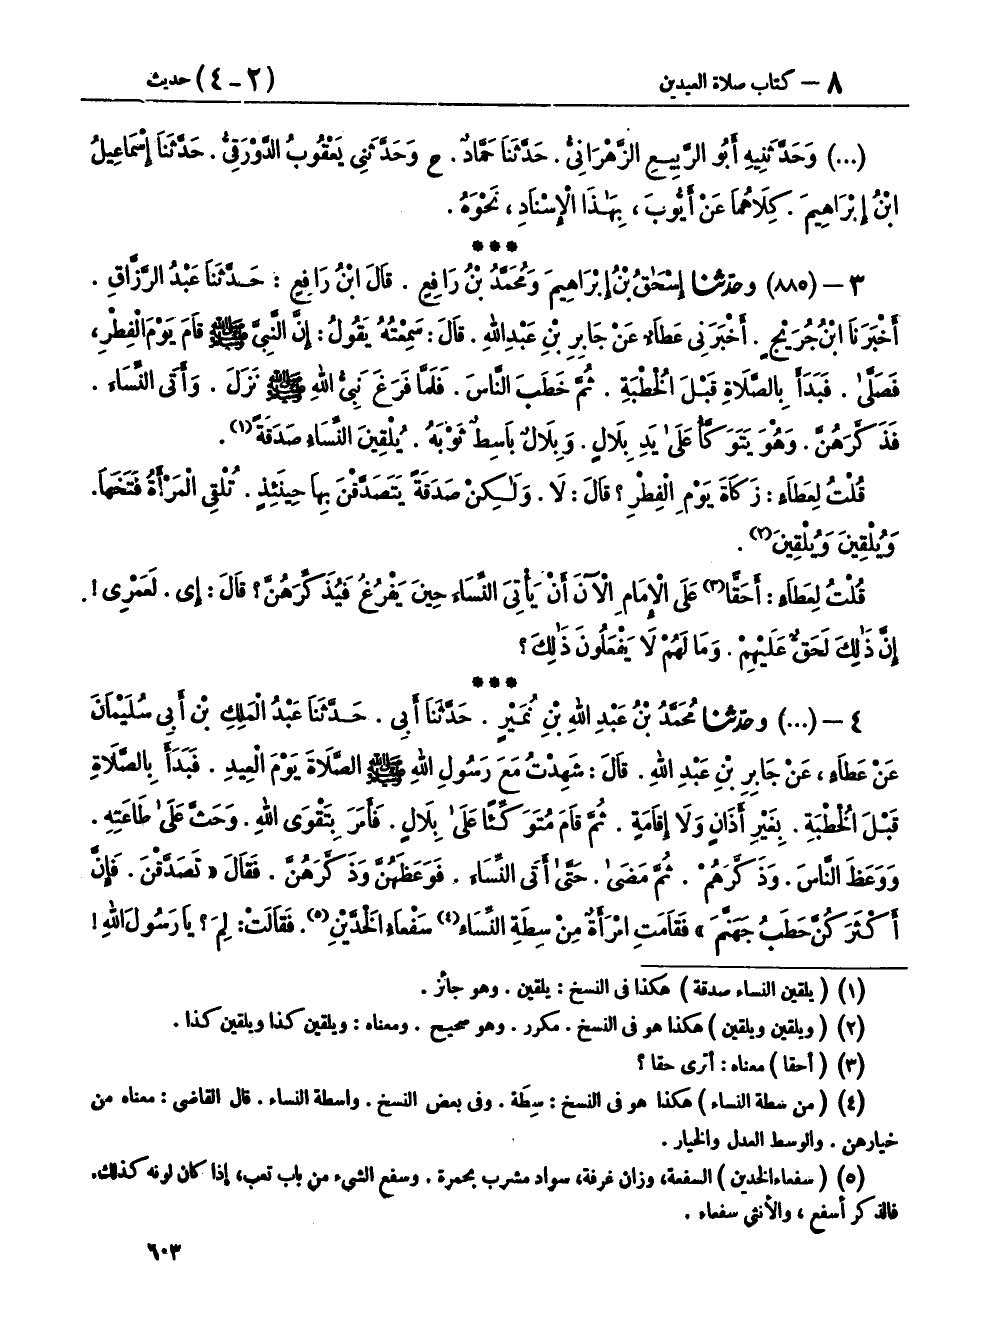 ٨ – كتاب صلاة العيدين (٢ – ٤) حديث
(...) وَحَدَّثَنِيهِ أَبُو الرَّبِيعِ الزَّهْرَانِىُّ . حَدَّثَنَا حَمَّادٌ . ح وَحَدَّثَنِى يَعْقُوبُ الدَّوْرَقِىُّ . حَدَّثَنَا إِسْمَاعِيلُ
ابْنُ إِبْرَاهِيمَ . كِلَاهُمَا عَنْ أَيُّوبَ ، بِهَٰذَا الْإِسْنَادِ ، نَحْوَهُ .
***
٣ – (٨٨٥) وحَدَّثَنَا إِسْحَٰقُ بْنُ إِبْرَاهِيمَ وَمُحَمَّدُ بْنُ رَافِعٍ . قَالَ ابْنُ رَافِعٍ : حَدَّثَنَا عَبْدُ الرَّزَّاقِ .
أَخْبَرَنَا ابْنُ جُرَيْجٍ . أَخْبَرَنِى عَطَاءٌ عَنْ جَابِرِ بْنِ عَبْدِ اللهِ . قَالَ : سَمِعْتُهُ يَقُولُ : إِنَّ النَّبِىَّ ﷺ قَامَ يَوْمَ الْفِطْرِ ،
فَصَلَّىٰ . فَبَدَأَ بِالصَّلَاةِ قَبْلَ الْخُطْبَةِ . ثُمَّ خَطَبَ النَّاسَ . فَلَمَّا فَرَغَ نَبِىُّ اللهِ ﷺ نَزَلَ . وَأَتَى النِّسَاءَ .
فَذَكَّرَهُنَّ . وَهُوَ يَتَوَكَّأُ عَلَىٰ يَدِ بِلَالٍ . وَبِلَالٌ بَاسِطٌ ثَوْبَهُ . يُلْقِينَ النِّسَاءُ صَدَقَةً(١) .
قُلْتُ لِعَطَاءٍ : زَكَاةَ يَوْمِ الْفِطْرِ ؟ قَالَ : لَا . وَلَٰكِنْ صَدَقَةً يَتَصَدَّقْنَ بِهَا حِينَئِذٍ . تُلْقِى الْمَرْأَةُ فَتَخَهَا.
وَيُلْقِينَ وَيُلْقِينَ(٢) .
قُلْتُ لِعَطَاءٍ : أَحَقًّا(٣) عَلَى الْإِمَامِ الْآنَ أَنْ يَأْتِىَ النِّسَاءَ حِينَ يَفْرُغُ فَيُذَكِّرَهُنَّ ؟ قَالَ : إِى . لَعَمْرِى !
إِنَّ ذَٰلِكَ لَحَقٌّ عَلَيْهِمْ . وَمَا لَهُمْ لَا يَفْعَلُونَ ذَٰلِكَ ؟
***
٤ – (...) وحَدَّثَنَا مُحَمَّدُ بْنُ عَبْدِ اللهِ بْنِ نُمَيْرٍ . حَدَّثَنَا أَبِى . حَدَّثَنَا عَبْدُ الْمَلِكِ بْنُ أَبِى سُلَيْمَانَ
عَنْ عَطَاءٍ ، عَنْ جَابِرِ بْنِ عَبْدِ اللهِ . قَالَ : شَهِدْتُ مَعَ رَسُولِ اللهِ ﷺ الصَّلَاةَ يَوْمَ الْعِيدِ . فَبَدَأَ بِالصَّلَاةِ
قَبْلَ الْخُطْبَةِ . بِغَيْرِ أَذَانٍ وَلَا إِقَامَةٍ . ثُمَّ قَامَ مُتَوَكِّئًا عَلَىٰ بِلَالٍ . فَأَمَرَ بِتَقْوَى اللهِ . وَحَثَّ عَلَىٰ طَاعَتِهِ .
وَوَعَظَ النَّاسَ . وَذَكَّرَهُمْ . ثُمَّ مَضَىٰ . حَتَّىٰ أَتَى النِّسَاءَ . فَوَعَظَهُنَّ وَذَكَّرَهُنَّ . فَقَالَ « تَصَدَّقْنَ . فَإِنَّ
أَكْثَرَكُنَّ حَطَبُ جَهَنَّمَ » فَقَامَتِ امْرَأَةٌ مِنْ سِطَةِ النِّسَاءِ(٤) سَفْعَاءُ الْخَدَّيْنِ(٥) . فَقَالَتْ : لِمَ ؟ يَا رَسُولَ اللهِ !
(١) ( يلقين النساء صدقة ) هكذا فى النسخ : يلقين . وهو جائز .
(٢) ( ويلقين ويلقين ) هكذا هو فى النسخ . مكرر . وهو صحيح . ومعناه : ويلقين كذا ويلقين كذا .
(٣) ( أحقا ) معناه : أترى حقا ؟
(٤) ( من سطة النساء ) هكذا هو فى النسخ : سِطَة . وفى بعض النسخ . واسطة النساء . قال القاضى : معناه من
خيارهن . والوسط العدل والخيار .
(٥) ( سفعاء الخدين ) السفعة، وزان غرفة، سواد مشرب بحمرة . وسفع الشىء من باب تعب، إذا كان لونه كذلك.
فالذكر أسفع ، والأنثى سفعاء .
٦٠٣